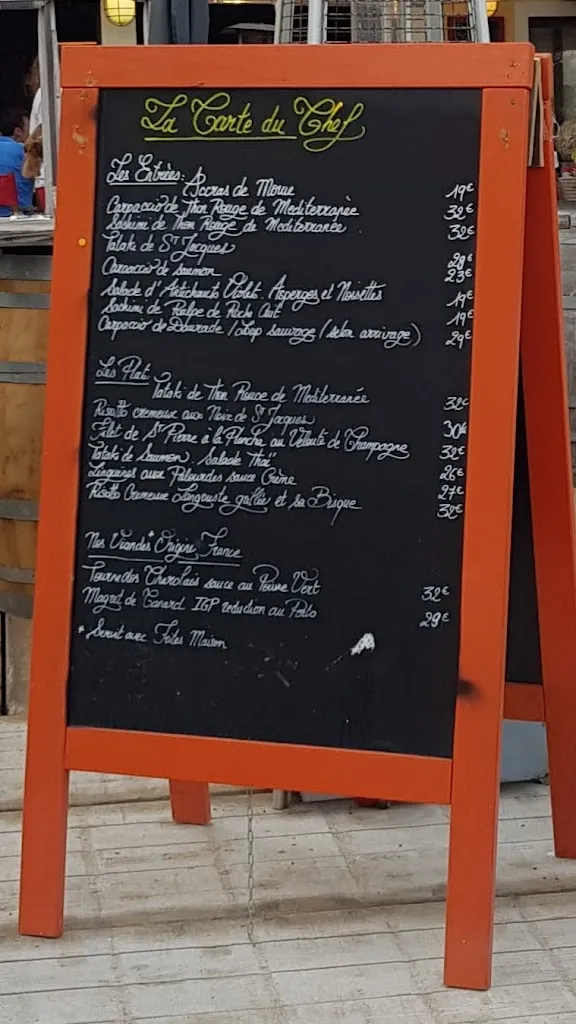 La Carte du Chef
Les Entrées: Accras de Morue 19€
Carpaccio de Thon Rouge de Mediterranée 32€
Sashimi de Thon Rouge de Mediterranée 32€
Tataki de St Jacques 29€
Carpaccio de saumon 23€
Salade d'Artichauts Violet. Asperges et Noisettes 19€
Sashimi de Poulpe de Roche Cuit 19€
Carpaccio de Daurade / Loup sauvage / (selon arrivage) 29€
Les Plat.
Tataki de Thon Rouge de Mediterranée 32€
Risotto cremeux aux Noix de St Jacques 30€
Filet de St Pierre à la Plancha au Velouté de Champagne 32€
Tataki de saumon. Salade Thaï 26€
Linguines aux Palourdes sauce Crème 27€
Risotto Cremeux Langouste grillée et sa Bisque 32€
Nos Viandes* Origine France
Tournedos Charolais sauce au Poivre Vert 32€
Magret de Canard IGP reduction au Porto 29€
* Servit avec Frites Maison